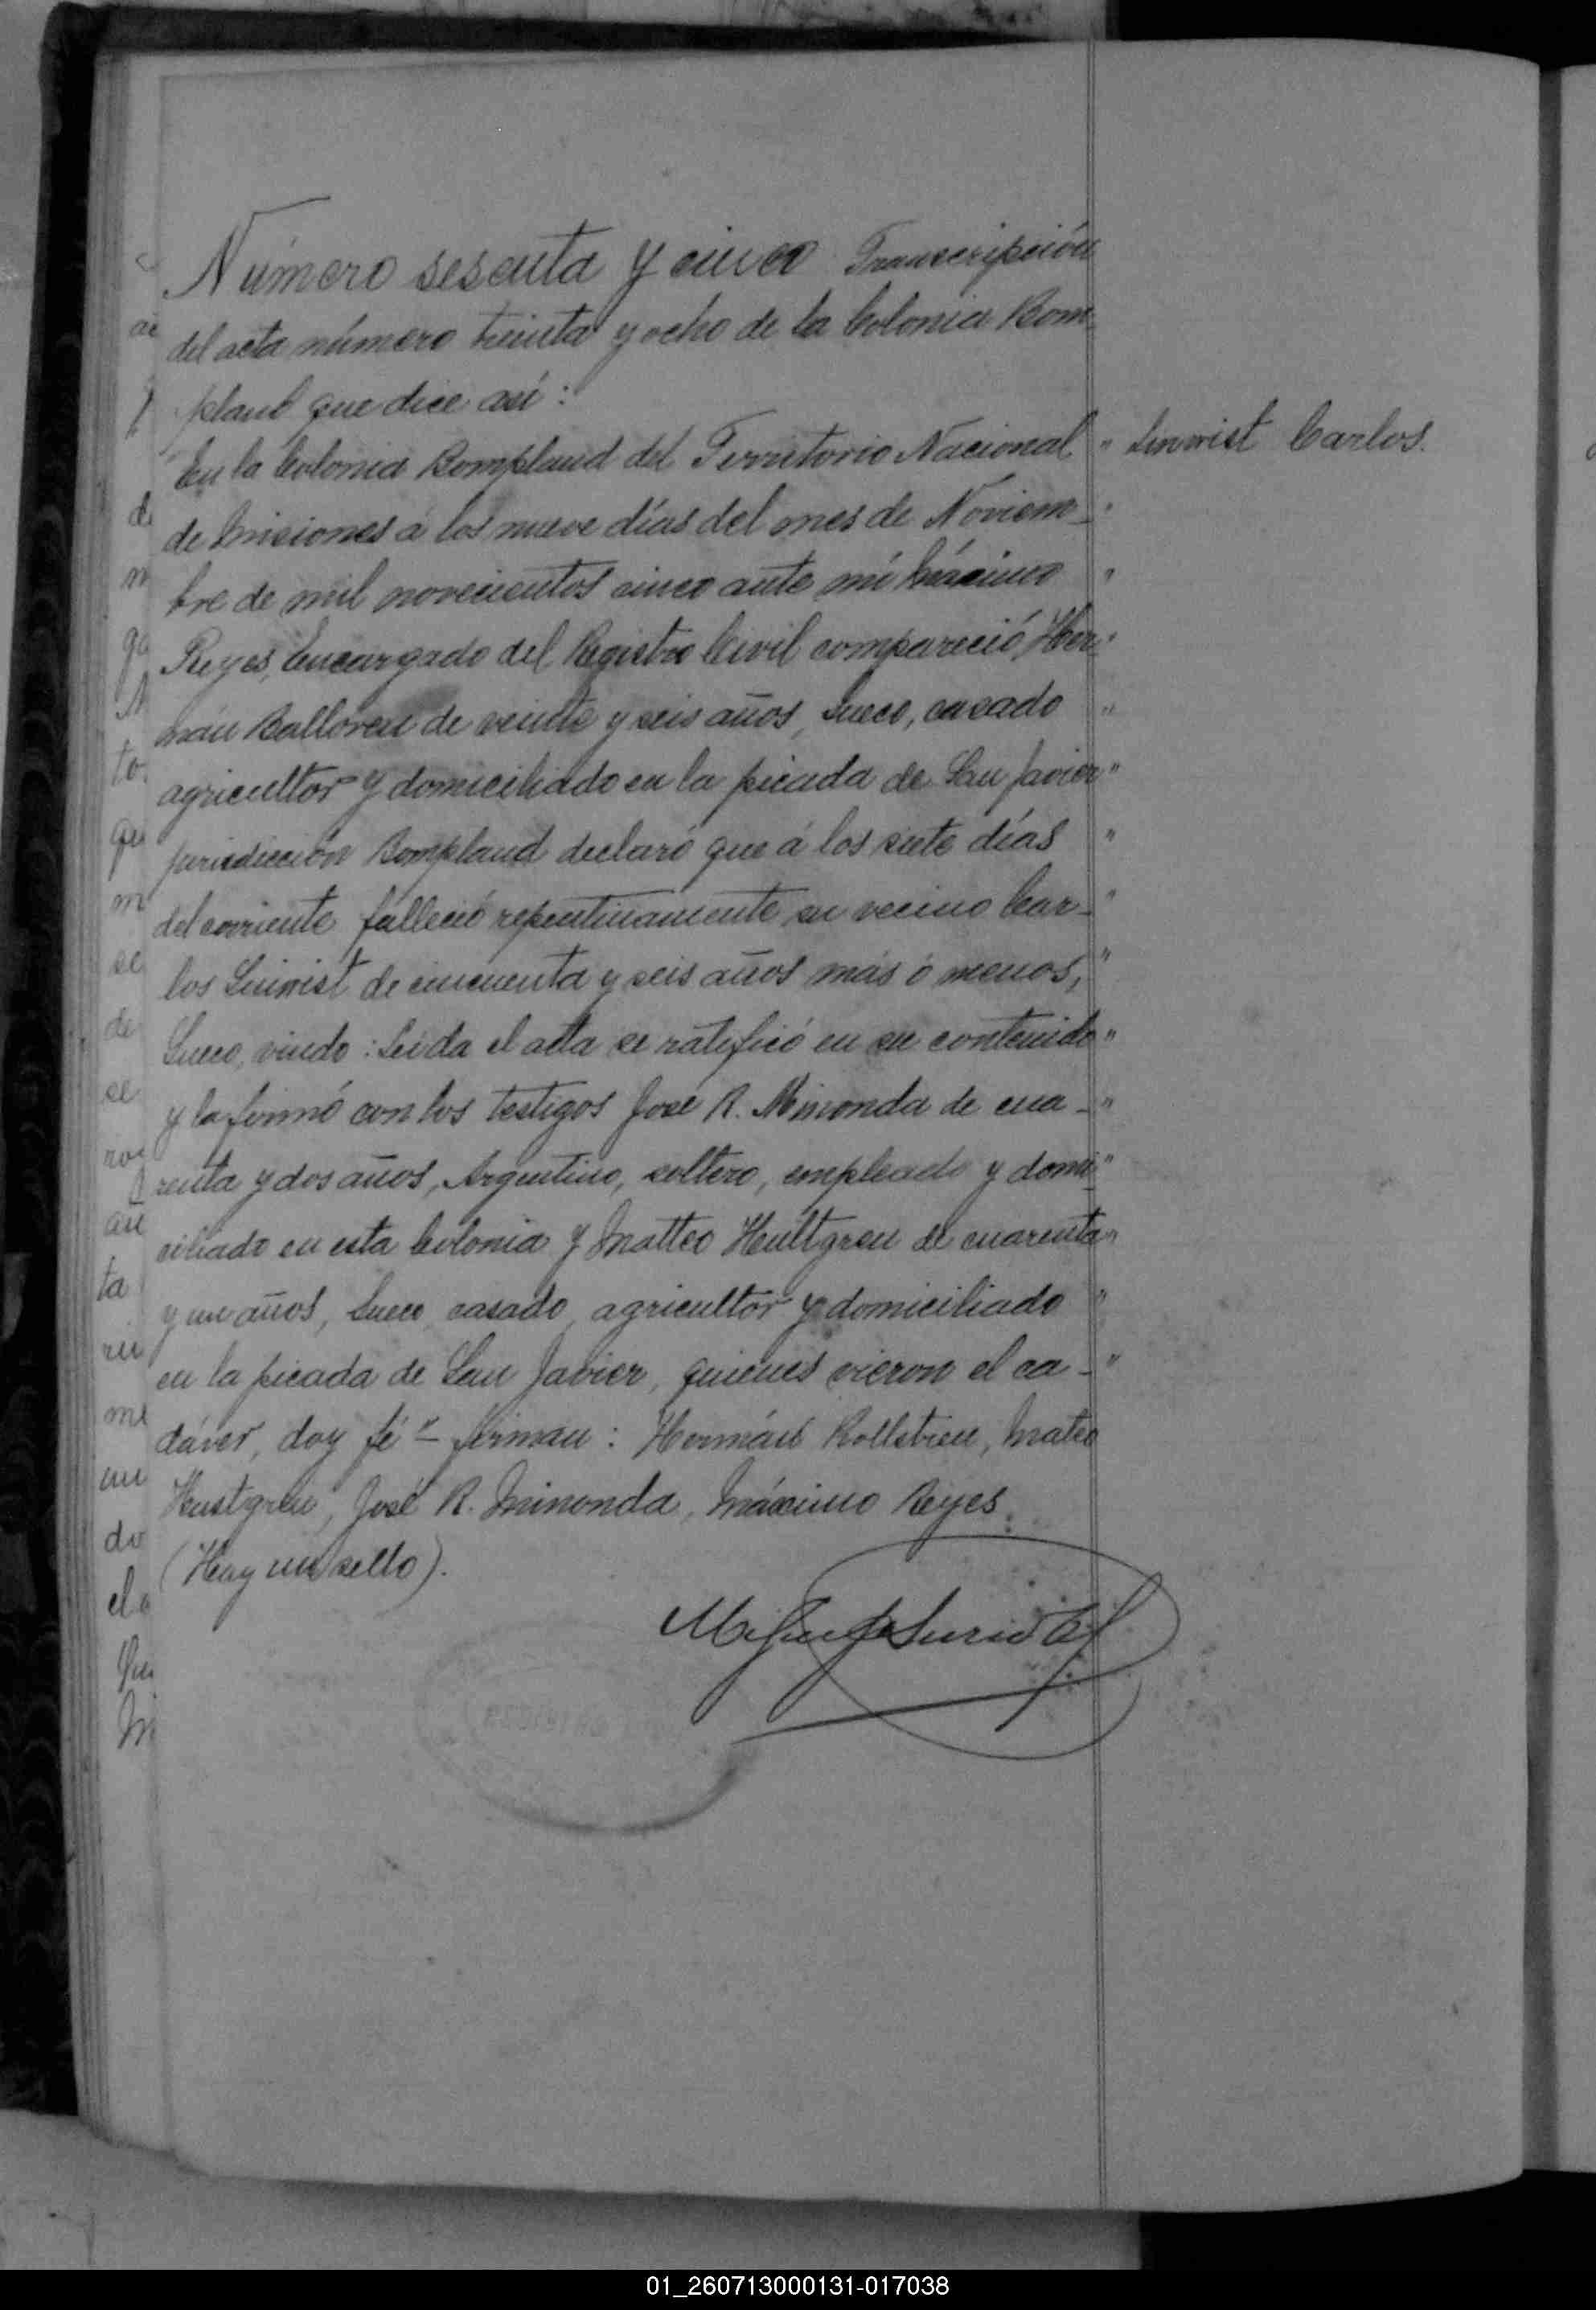 Número sesenta y cinco Transcripción
del acta número treinta y ocho de la Colonia Bom-
pland que dice así:
En la Colonia Bompland del Territorio Nacional "
de Misiones á los nueve días del mes de Noviem- "
bre de mil novecientos cinco ante mí Máximo "
Reyes, Encargado del Registro Civil compareció Her- "
mán de veinte y seis años, Sueco, casado "
agricultor y domiciliado en la picada de San Javier "
jurisdicción Bompland declaró que á los siete días "
del corriente falleció repentinamente su vecino Car- "
los de cincuenta y seis años más ó menos, "
Sueco, viudo: Leída el acta se ratificó en su contenido "
y la firmó con los testigos José R. Minonda de cua- "
renta y dos años, Argentino, soltero, empleado y domi- "
ciliado en esta Colonia y Matteo Hultgren de cuarenta "
y un años, Sueco, casado, agricultor y domiciliado "
en la picada de San Javier, quienes vieron el ca- "
dáver, doy fé" – firman: Hermán Mateo
José R. Minonda, Máximo Reyes.
(Hay un sello).
Carlos.
01_260713000131-017038